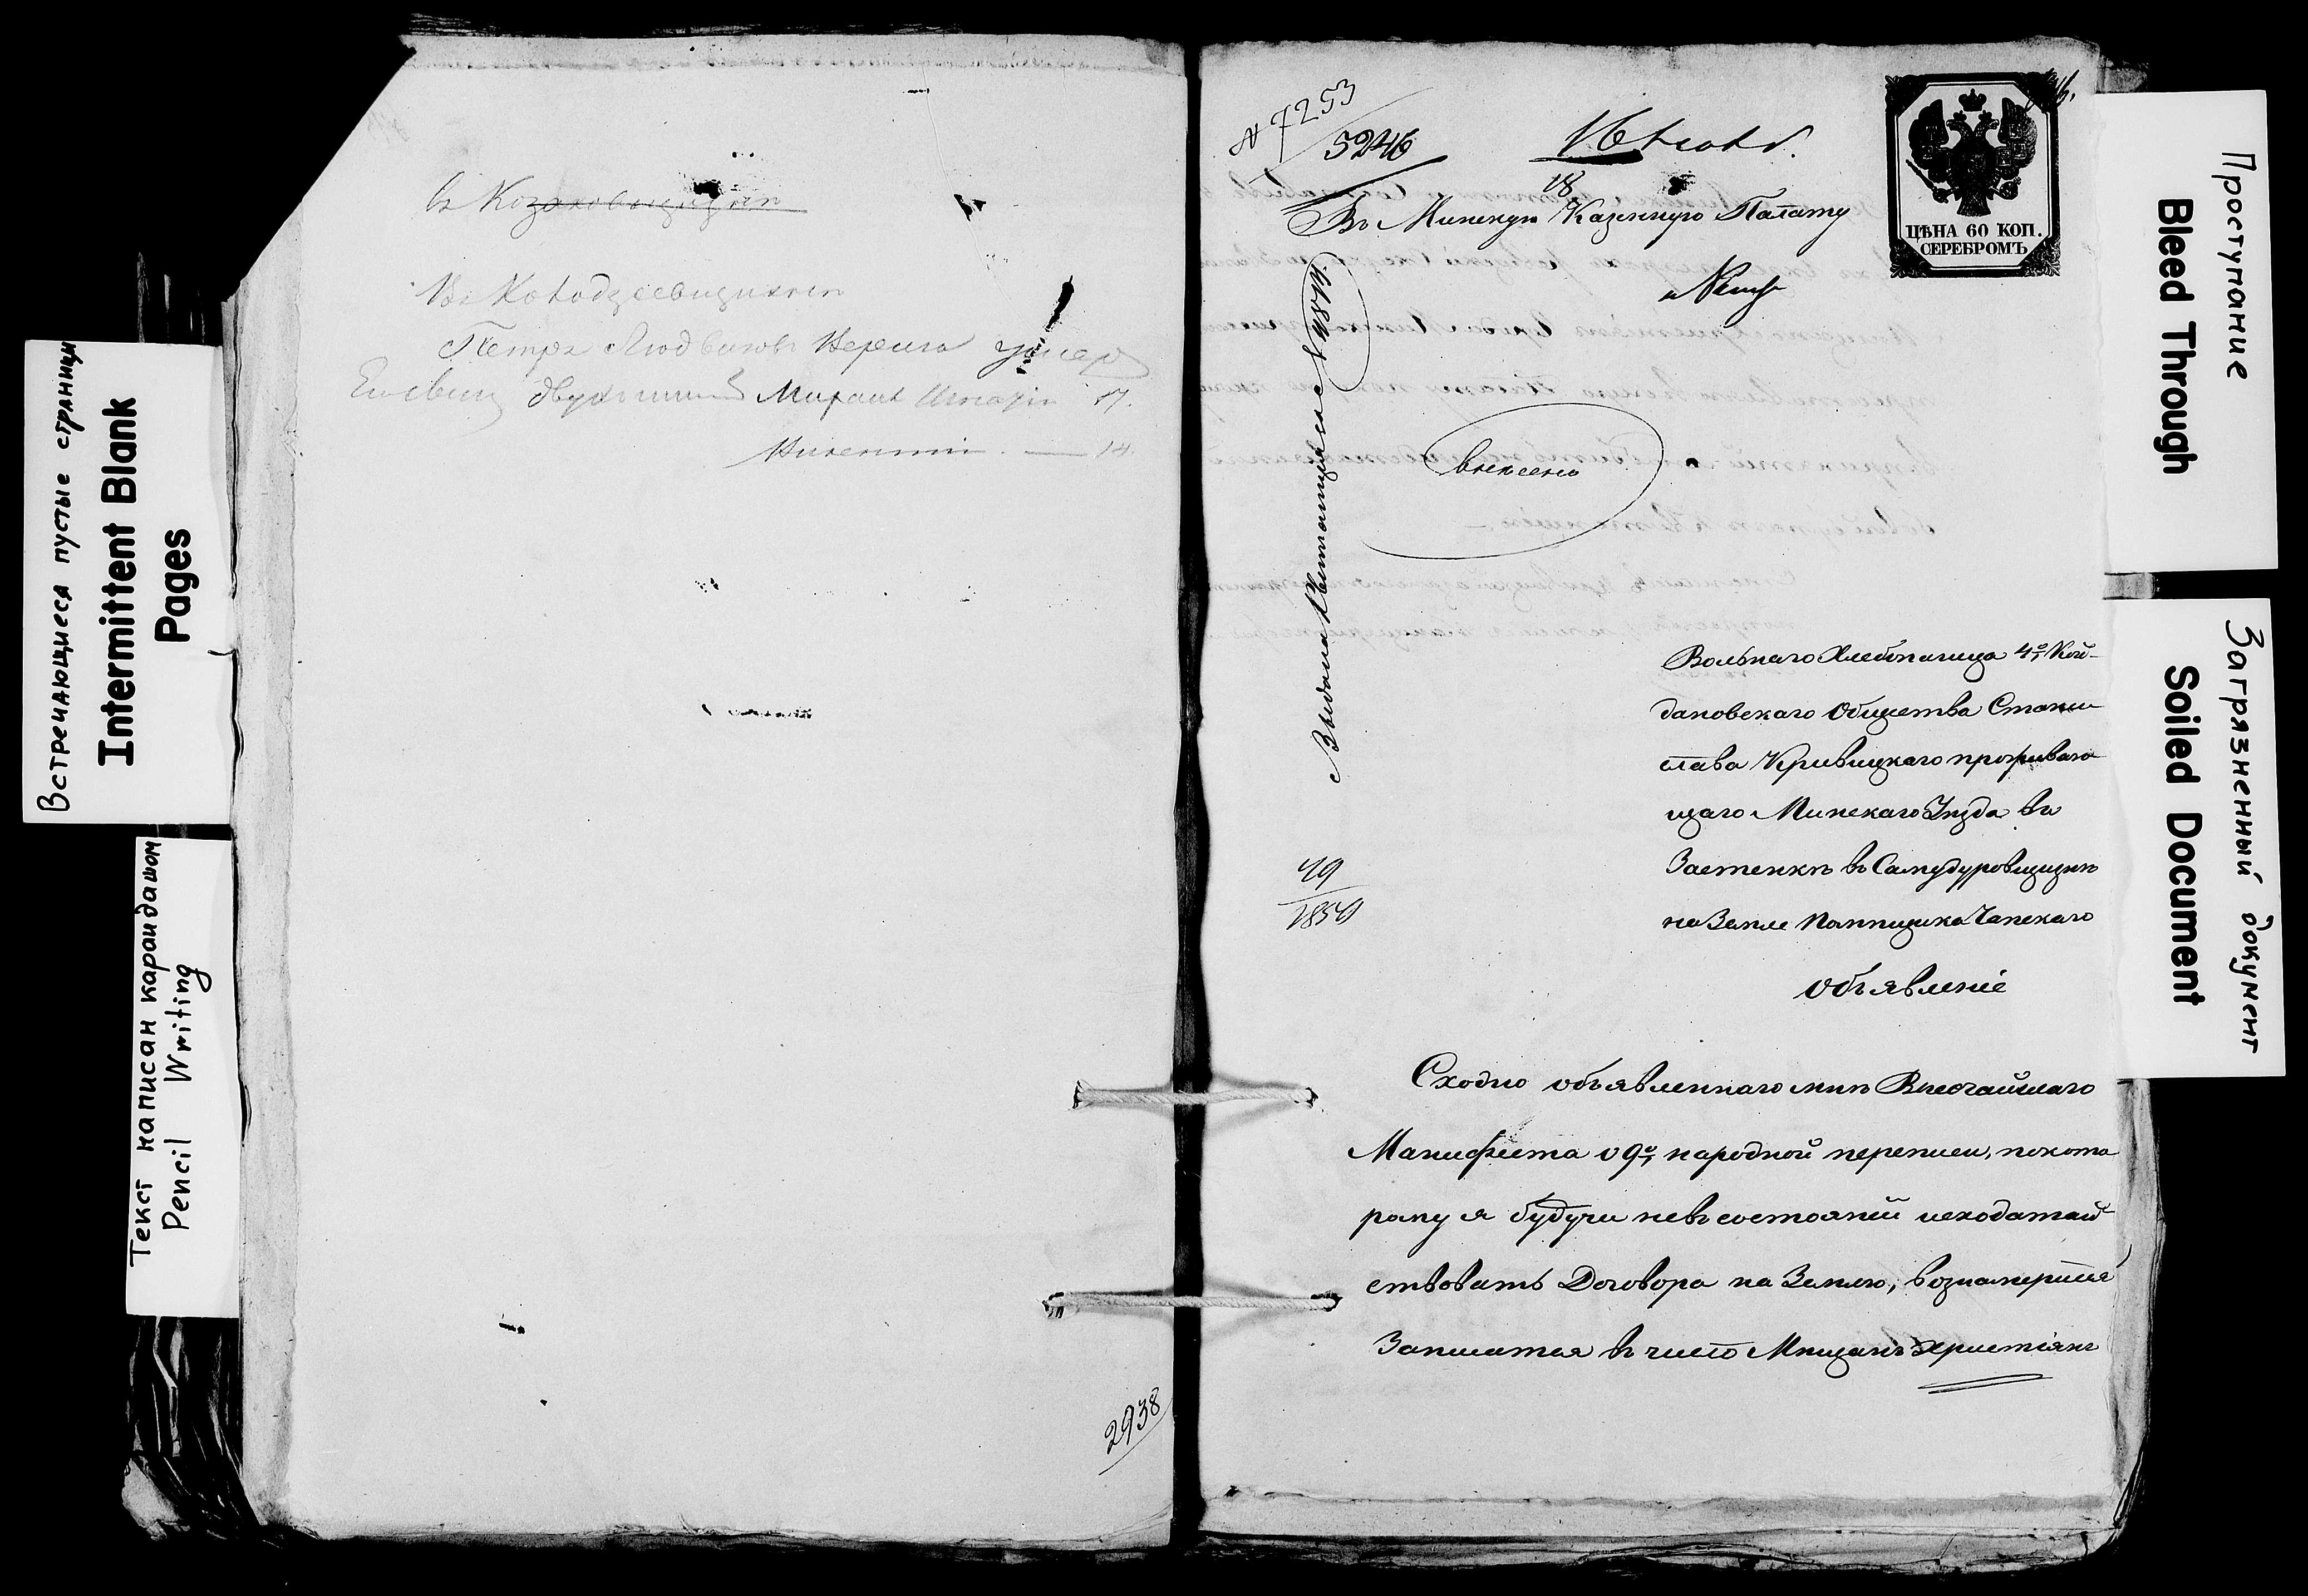 Встречающиеся пустые страницы
Intermittent Blank
Pages
Текст написан карандашом
Pencil Writing
въ Козаковщизнѣ
Въ Колодзеевщизнѣ
Петръ Людвиковъ умер
2938
№ 7253
5246
18
Въ Минскую Казенную Палату
ЦѢНА 60 КОП.
СЕРЕБРОМЪ
внесено
Выдана Квитанція за № 1871
19
1850
Вольнаго Хлебопашца 4го Кой-
дановскаго Общества Стани
слава Кривицкаго проживаю
щаго Минскаго Уѣзда въ
Застенкѣ въ Самудуровщизнѣ
на Земле Помѣщика Чапскаго
Объявленіе
Сходно объявленнаго мнѣ Высочайшаго
Манифеста о 9й народной переписи, покото
рому я будучи невъ состояніи исходатай-
ствовать Договора на Землю, вознамерился
Записатся въ число Мѣщанъ Христіянъ
Проступание
Bleed Through
Загрязненный документ
Soiled Document